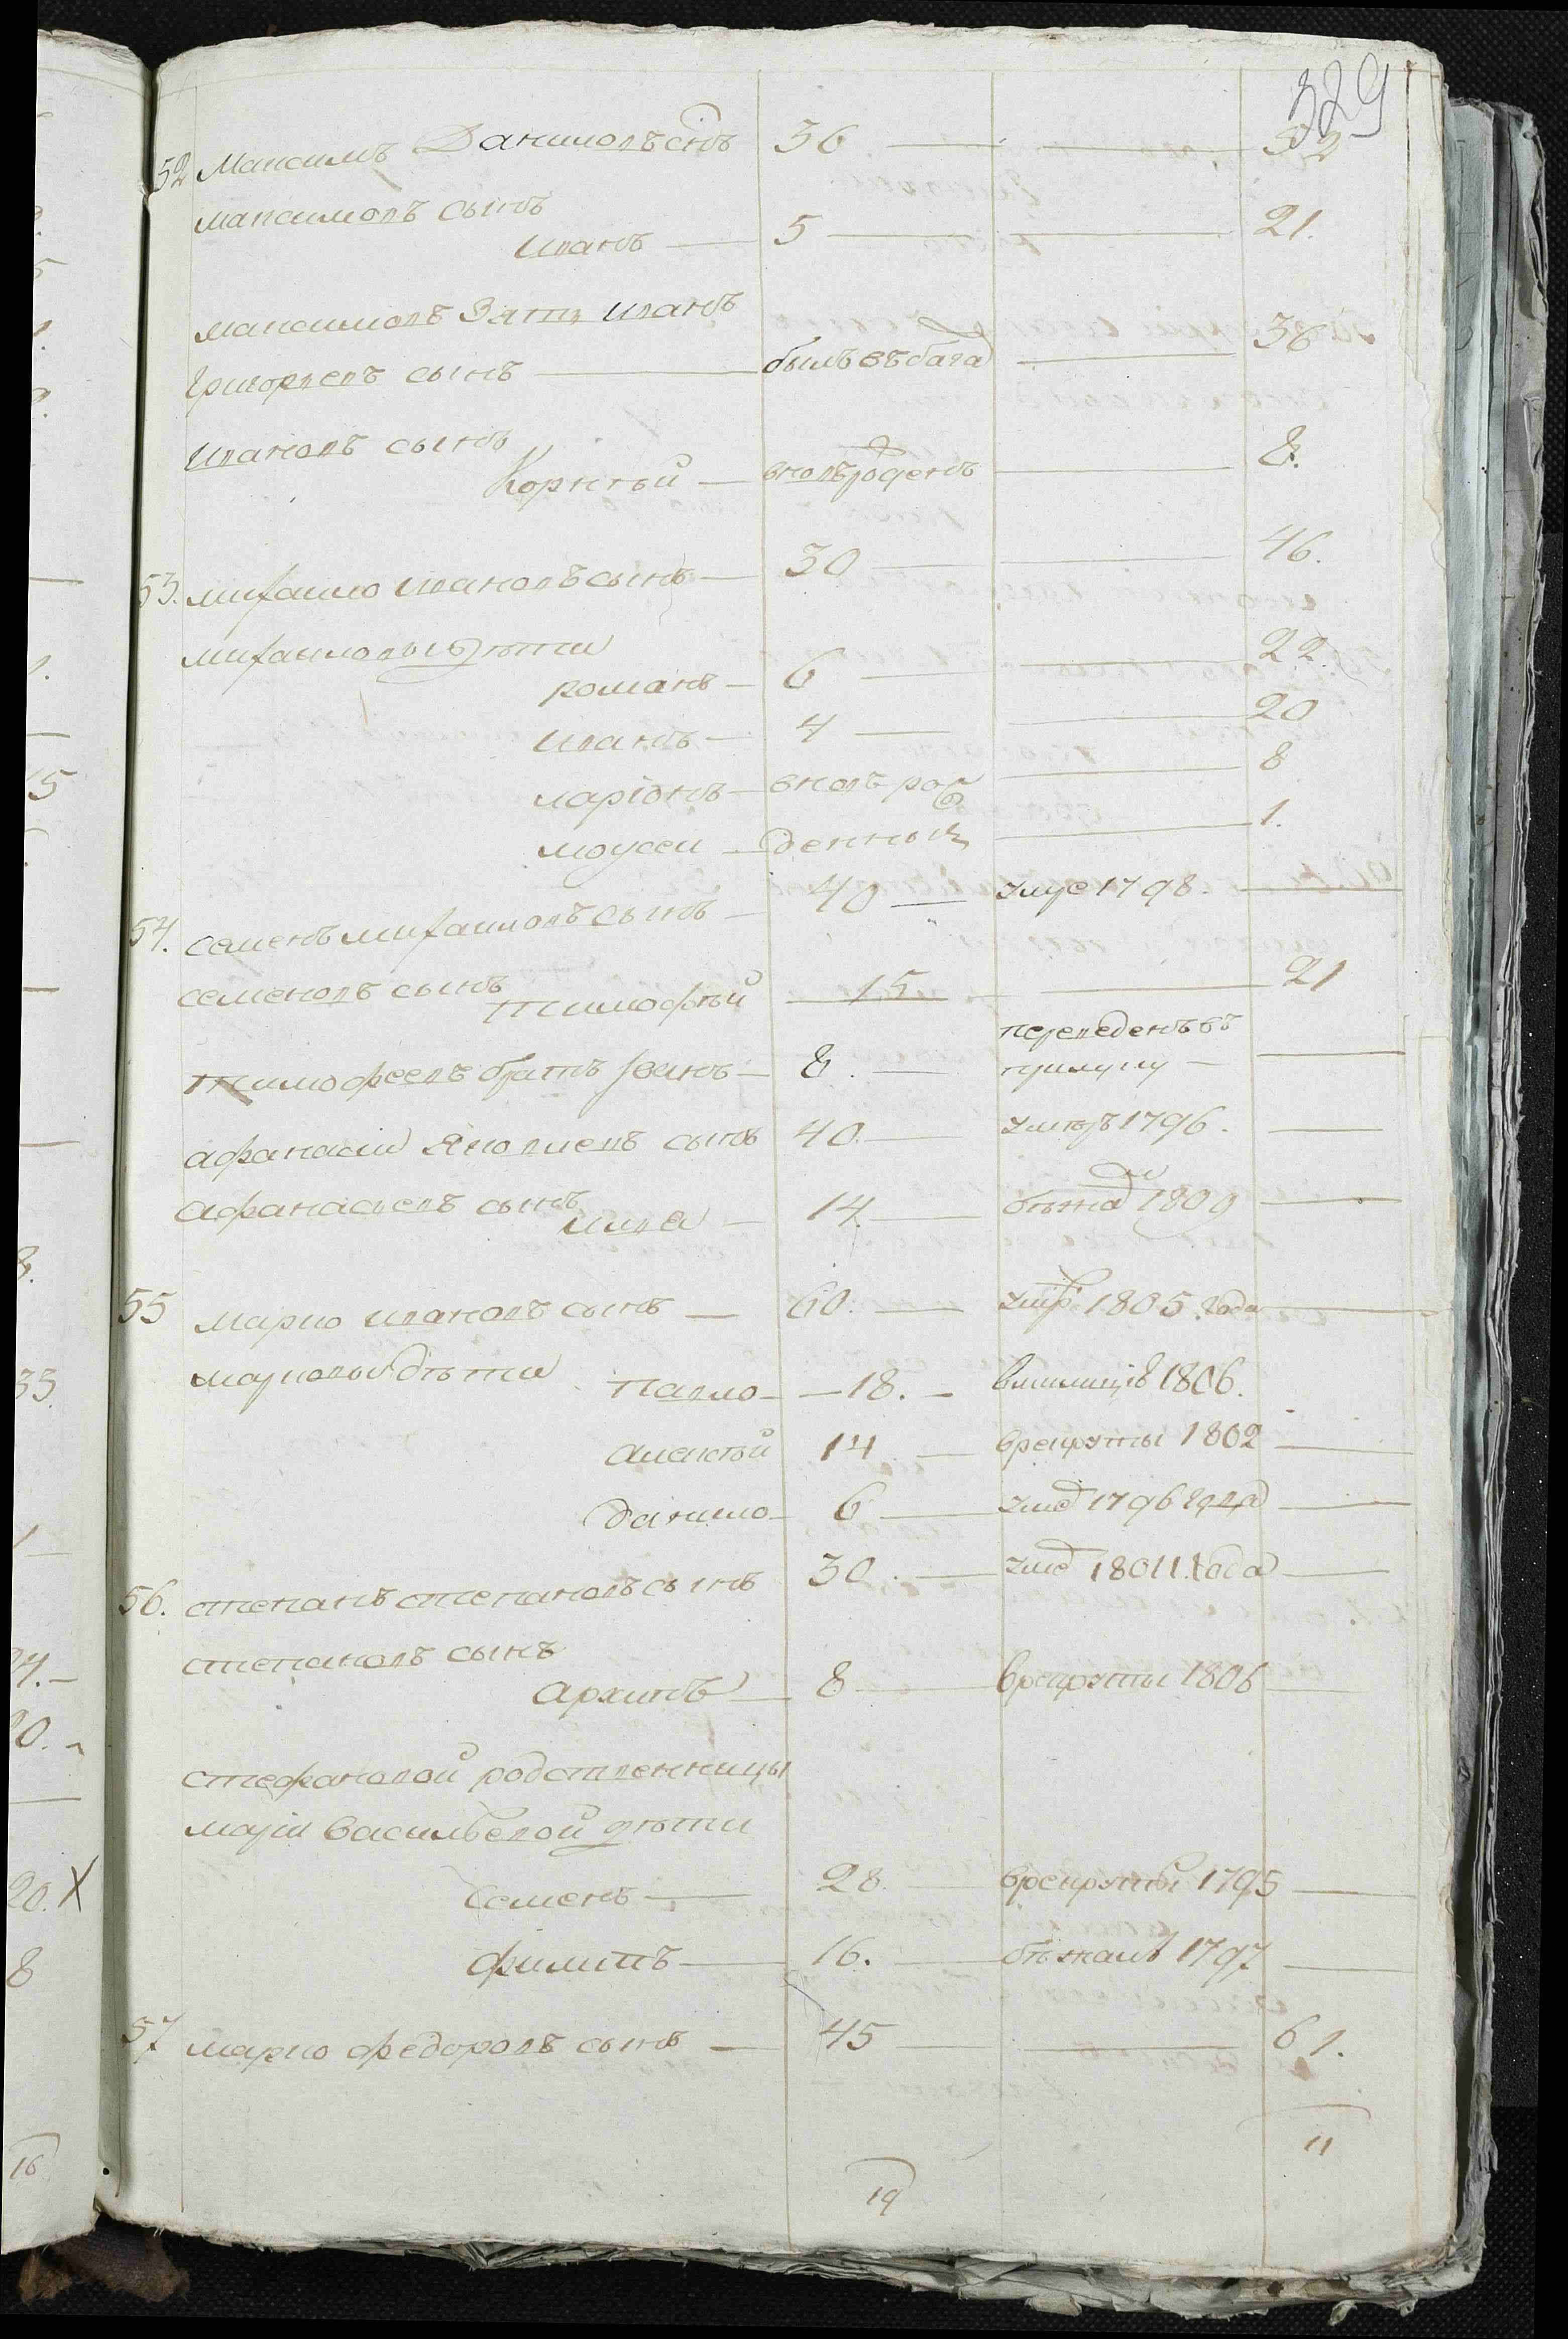 329
52 Максимъ Даниловъ снъ 36 52
максимовъ сынъ
иванъ 5 21.
максимовъ зять иванъ
григорьевъ сынъ былъ въ бѣга 36
ивановъ сынъ
Корнѣй вновь рожденъ 8.
53. михаило ивановъ сынъ 30 46.
михаиловы дѣти
романъ 6 22.
иванъ 4 20
ларіонъ вновь рож 8
моусеи денныя 1.
54. семенъ михаиловъ сынъ 40 умре 1798.
семеновъ сынъ
тимофѣй 15 21
тимофеевъ братъ 8. переведенъ въ
афанасии Яковлевъ сынъ 40. умеръ 1796.
афанасьевъ сынъ
14. бѣжа 1809
55 марко ивановъ сынъ 60. умре 1805. года
марковы дѣти
павло 18. 1806.
алексѣй 14 врекруты 1802
данило 6 1796 года
56. степанъ степановъ сынъ 30. 18011. года
степановъ сынъ
архипъ 8 врекруты 1806
стефановой родственницы
маріи васильевой дѣти
семенъ 28. врекруты 1795
филипъ 16. бѣжалъ 1797
57 марко федоровъ сынъ 45 61.
11
19